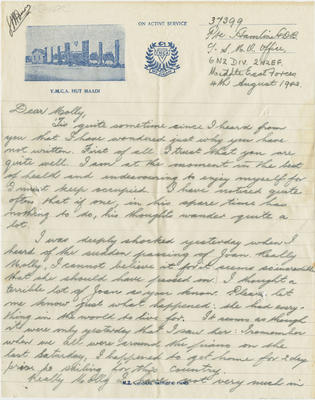 ON ACTIVE SERVICE
Y.M.C.A. HUT MAADI
37299
C/- S.N.O. Office,
6 NZ DIV. 2 NZEF.
Middle East Forces
4th August 1943
Dear Molly,
Tis quite sometime since I heard from
you that I have wondered just why you have
not written. First of all I trust that you are
quite well. I am at the moment in the best
of health and endeavouring to enjoy myself for
I must keep occupied. I have noticed quite
often that if one, in his spare time has
nothing to do, his thoughts wander quite a
lot.
I was deeply shocked yesterday when I
heard of the sudden passing of Joan. Really
Molly, I cannot believe it for it seems so incredible
that she should have passed on. I thought a
terrible lot of Joan as you know. Please let
me know just what happened, she had every-
thing in the world to live for. It seems as though
it were only yesterday that I saw her. I remember
when we all were around the piano on the
last Saturday, I happened to get home for 2 day
prior to sailing for this country.
Really Molly I have not very much in